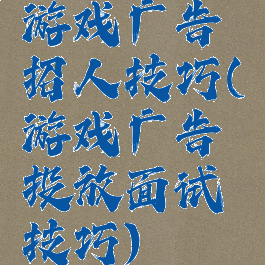 游戏广告
招人技巧(
游戏广告
投放面试
技巧)